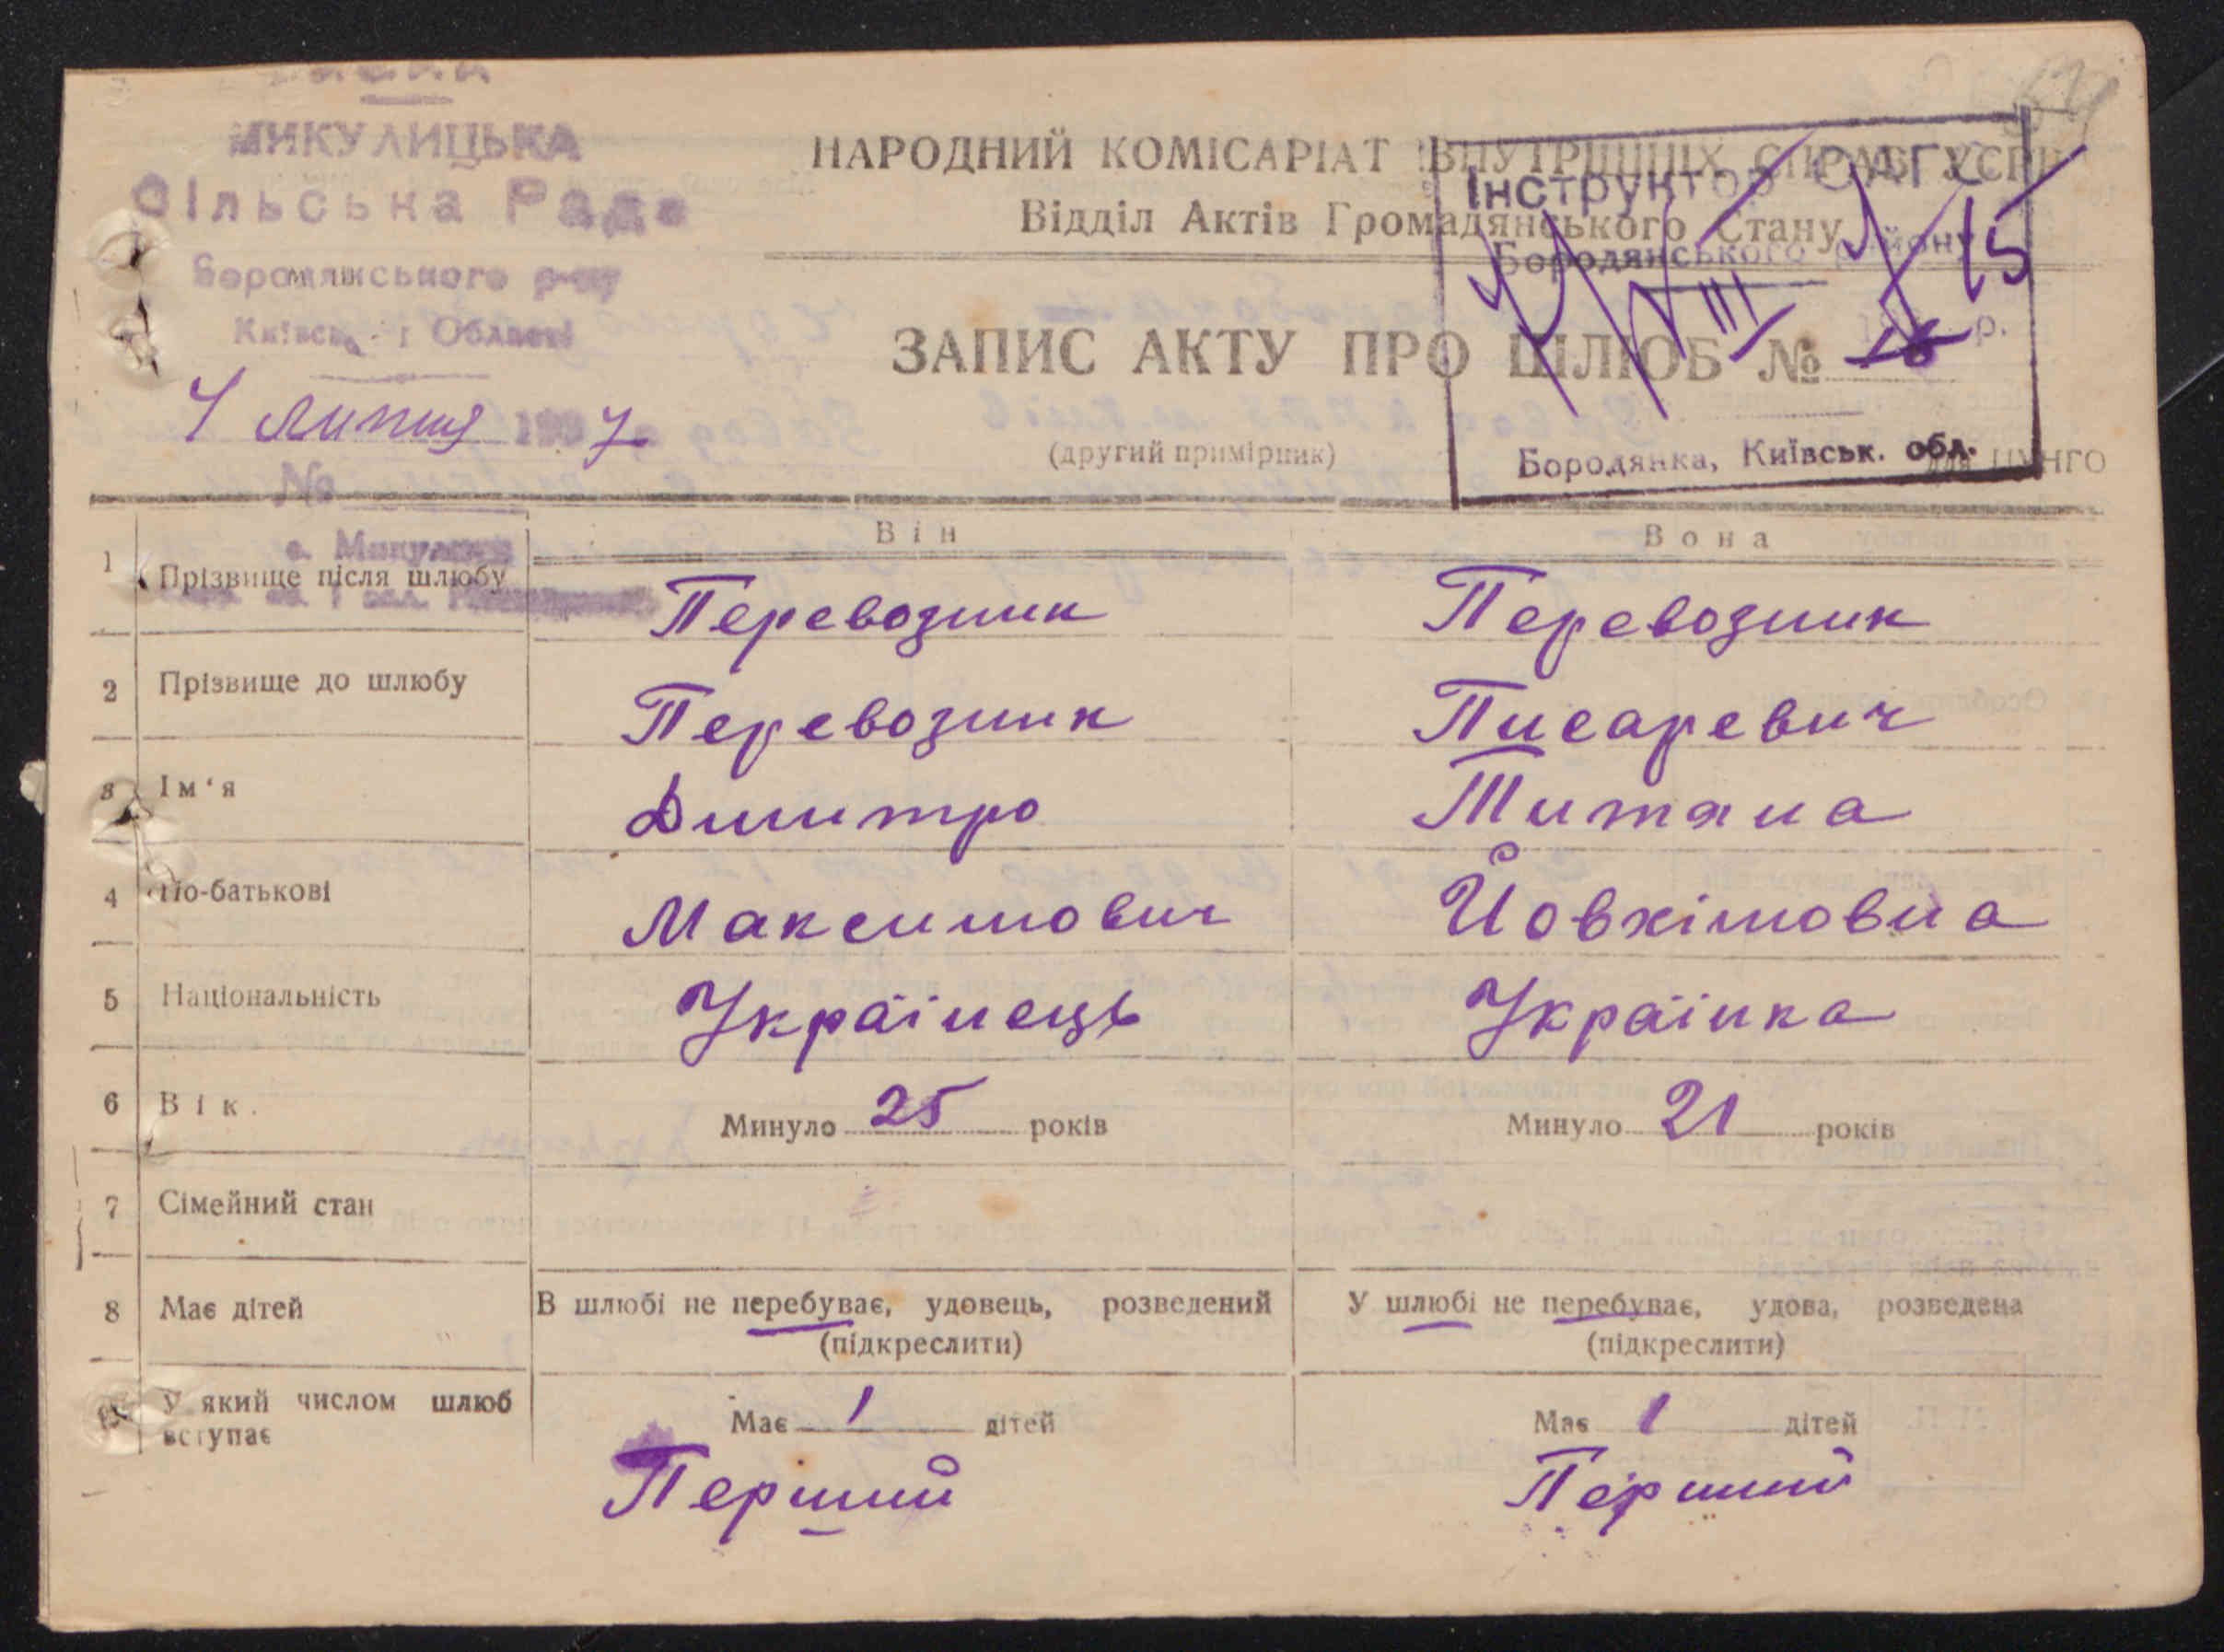 МИКУЛИЦЬКА
Сільська Рада
Бородянського р-ну
Київськ. Області
4 липня 7
№
НАРОДНИЙ КОМІСАРІАТ ВНУТРІШНІХ СПРАВ УСРР
Відділ Актів Громадянського Стану
Інструктор ОАГС
Бородянського району
III
15
р.
Бородянка, Київськ. обл.
ЗАПИС АКТУ ПРО ШЛЮБ № 16
(другий примірник)
для ЦУНГО
Він Вона
1 Прізвище після шлюбу Перевозник Перевозник
2 Прізвище до шлюбу Перевозник Писаревич
3 Ім'я Дмитро Титяна
4 По-батькові Максимович Йовхімовна
5 Національність Українець Українка
6 Вік. Минуло 25 років Минуло 21 років
7 Сімейний стан
8 Має дітей В шлюбі не перебуває, удовець, розведений У шлюбі не перебуває, удова, розведена
(підкреслити) (підкреслити)
У який числом шлюб вступає Має 1 дітей Має 1 дітей
Перший Перший